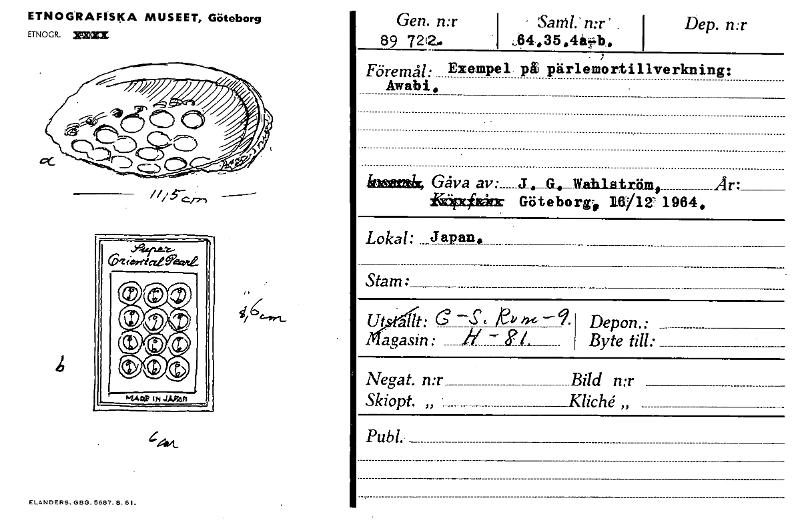 ETNOGRAFISKA MUSEET, Göteborg
ETNOGR.
a
11,5 cm
Super
Oriental Pearl
MADE IN JAPAN
8,6 cm
b
6 cm
ELANDERS, GBG. 5687. 8. 61.
Gen. n:r Saml. n:r Dep. n:r
89 722. 64.35.4a-b.
Föremål: Exempel på pärlemortillverkning:
Awabi.
Gåva av: J. G. Wahlström, År:
Göteborg, 16/12 1964.
Lokal: Japan.
Stam:
Utställt: G-S. Rum-9. Depon.:
Magasin: H-81. Byte till:
Negat. n:r Bild n:r
Skiopt. „ Kliché „
Publ.